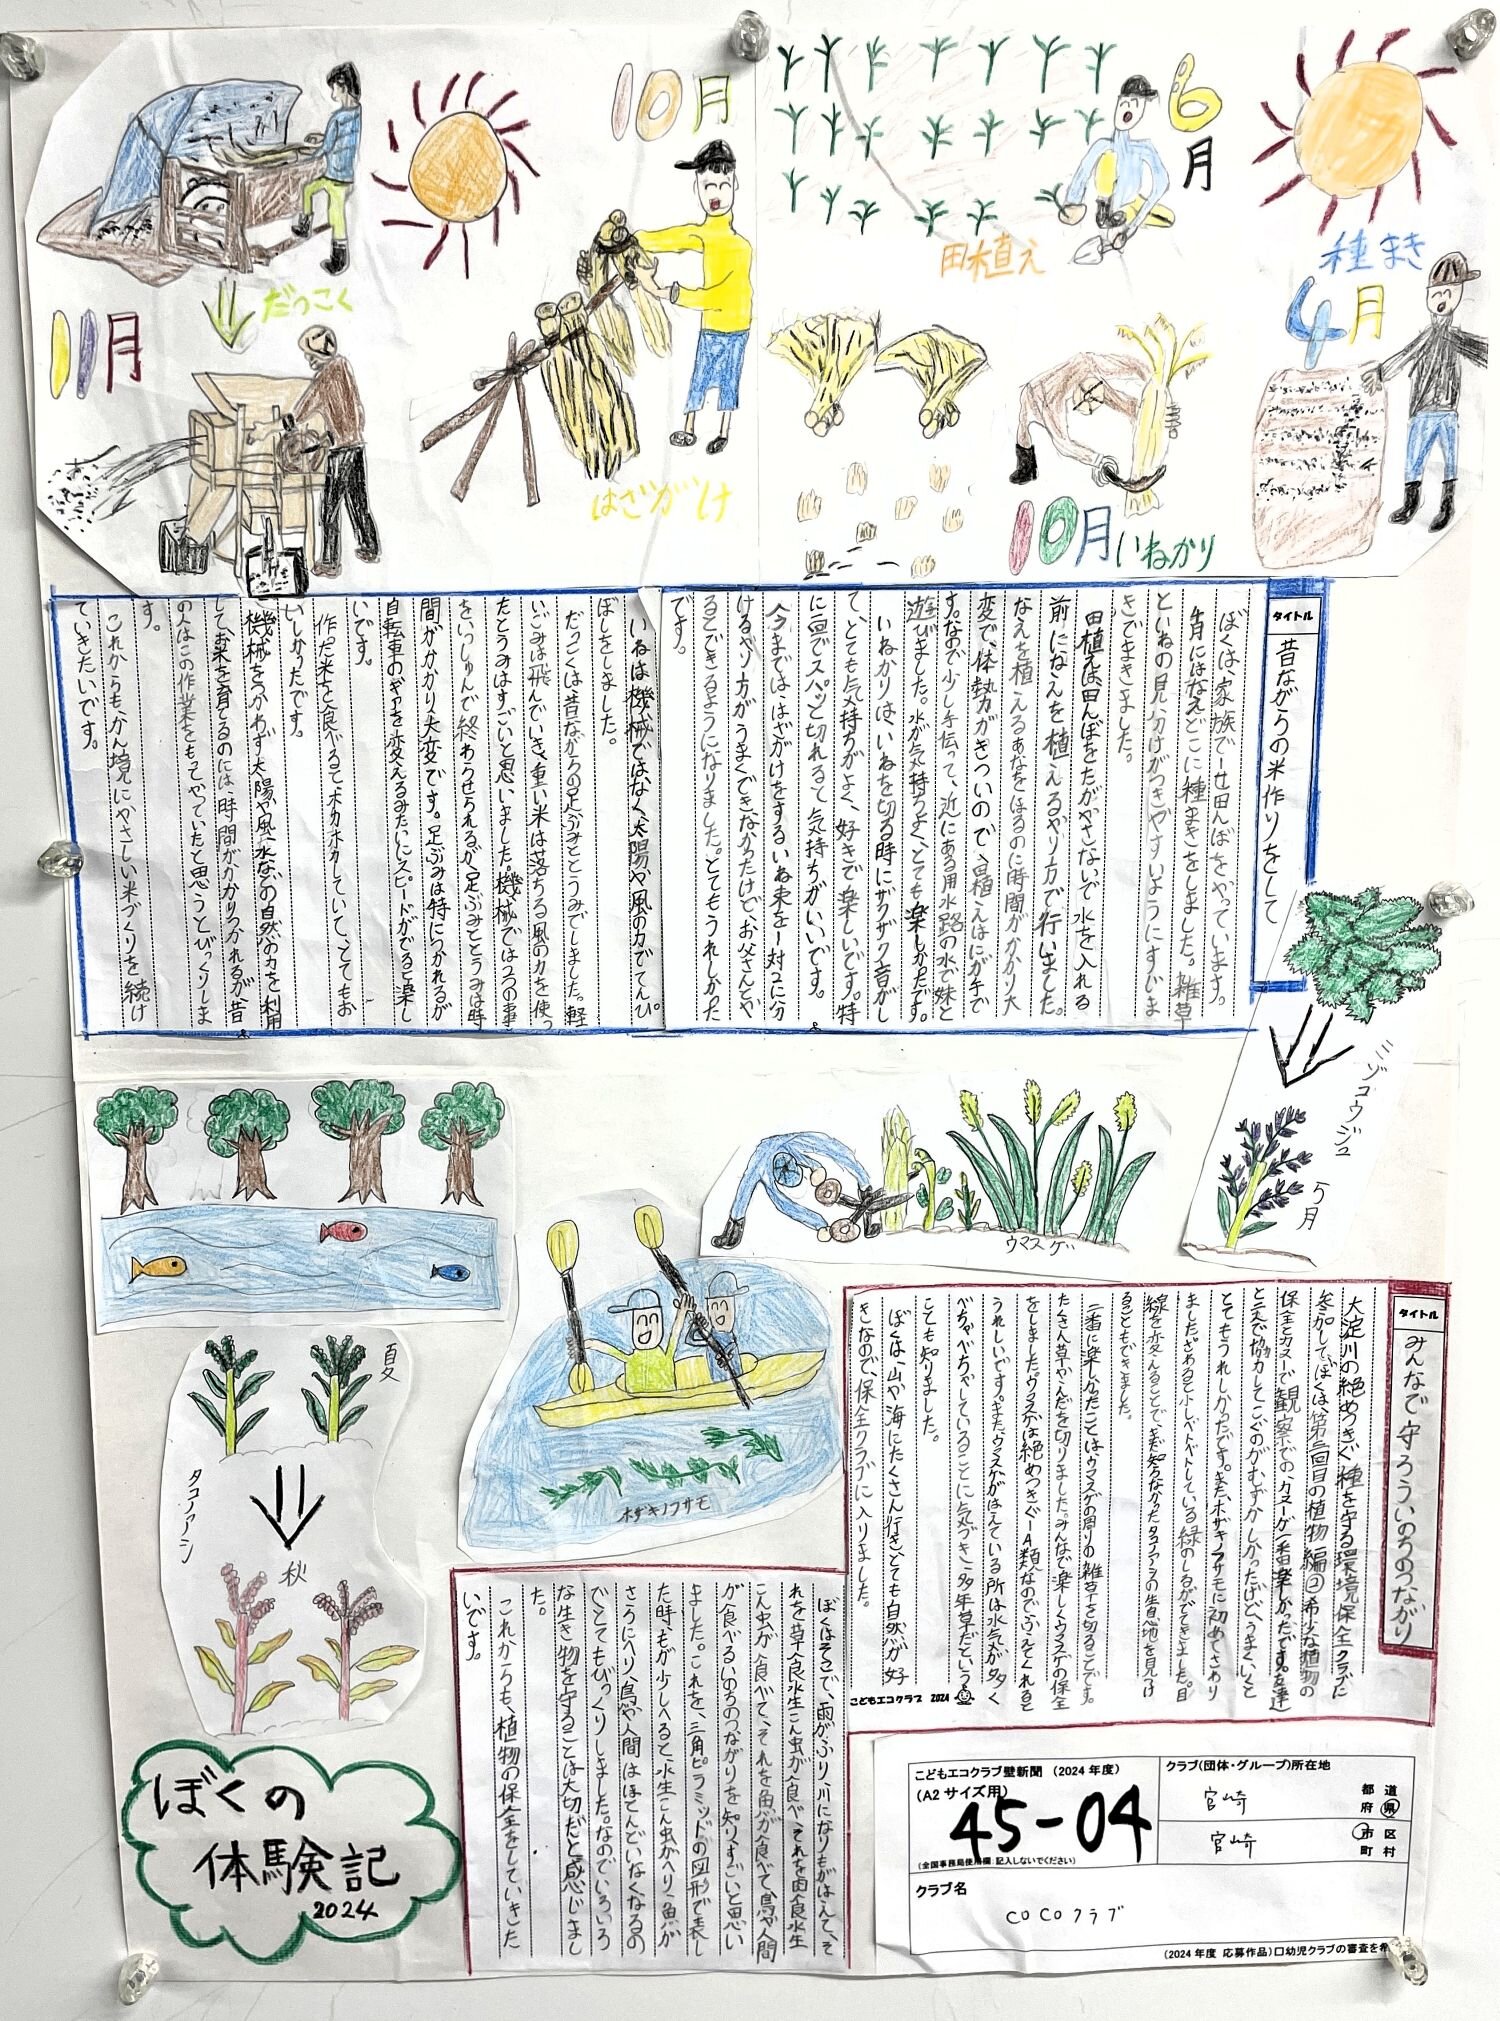 11月
だっこく
10月
はざがけ
6月
田植え
種まき
4月
10月いねかり
タイトル 昔ながらの米作りをして
ぼくは、家族で一世田んぼをやっています。
4月にはなえどこに種まきをしました。雑草
といねの見分けがつきやすいようにすじま
きでまきました。
田植えは田んぼをたがやさないで水を入れる
前になえを植えるやり方で行いました。
なえを植えるあなをほるのに時間がかかり大
変で、体勢がきついので田植えはにが手で
す。なので少し手伝って、近にある用水路の水で妹と
遊びました。水が気持ちよく、とても楽しかたです。
いねかりは、いねを切る時にザクザク音がし
て、とても気持ちがよく、好きで楽しいです。特
に一回でスパッと切れるて気持ちがいいです。
今までは、はざがけをするいね束を一対2に分
けるやり方がうまくできなかったけど、お父さんとや
るとできるようになりました。とてもうれしかった
です。
いねは機械ではなく、太陽や風の力でてんぴ
ぼしをしました。
だっこくは昔ながらの足ぶみととうみでしました。軽
いごみは飛んでいき、重い米は落ちる風の力を使っ
たとうみはすごいと思いました。機械では2つの事
をいっしゅんで終わらせられるが足ぶみととうみは時
間がかかり大変です。足ぶみは特につかれるが
自転車のギアを変えるみたいにスピードがでると楽し
いです。
作た米を食べるてホカホカしていて、とてもお
いしかったです。
機械をつかわず太陽や風、水などの自然の力を利用
して、お米を育てるのには、時間がかかりつかれるが昔
の人はこの作業をもってやっていたと思うとびっくりしま
す。
これからも、かん境にやさしい米づくりを続け
ていきたいです。
ミゾコウジュ
5月
ウマスゲ
ホザキノフサモ
夏
タコノアシ
秋
タイトル みんなで守ろういのちのつながり
大淀川の絶めつきぐ種を守る環境保全クラブに
参加して、ぼくは第三回目の植物編②希少な植物の
保全とカヌーで観察でのカヌーが一番楽しかったです。友達
と三人で協力してこぐのがむずかしかったけど、うまくいくと
とてもうれしかったです。またホザキノフサモに初めてさわり
ました。さわると少しベトベトしている緑のしるがでてきました。目
線を変えることで、まだ知らなかったタコノアシの生息地を見つけ
ることもできました。
二番に楽しかたことは、ウマスゲの周りの雑草を切ることです。
たくさん草やえだを切りました。みんなで楽しくウマスゲの保全
をしました。ウマスゲは絶めつきぐIA類なのでふえてくれると
うれしいです。またウマスゲがはえている所は水気が多く
べちゃべちゃしていることに気づき、多年草だという
ことも知りました。
ぼくは、山や海にたくさん行き、とても自然が好
きなので、保全クラブに入りました。
こどもエコクラブ 2024
ぼくはそこで、雨がふり、川になりもがはえて、そ
れを草食水生こん虫が食べ、それを肉食水生
こん虫が食べて、それを魚が食べて、鳥や人間
が食べるいのちのつながりを知り、すごいと思い
ました。これを、三角ピラミッドの図形で表し
た時、もが少しへると、水生こん虫がへり、魚が
さらにへり、鳥や人間はほとんどいなくなるの
でとてもびっくりしました。なのでいろいろ
な生き物を守ることは大切だと感じまし
た。
これからも、植物の保全をしていきた
いです。
ぼくの
体験記
2024
こどもエコクラブ壁新聞 (2024年度)
(A2サイズ用)
45-04
(全国事務局使用欄:記入しないでください)
クラブ(団体・グループ)所在地
宮崎 都道府県
宮崎 市区町村
クラブ名
COCOクラブ
(2024年度 応募作品)□幼児クラブの審査を希